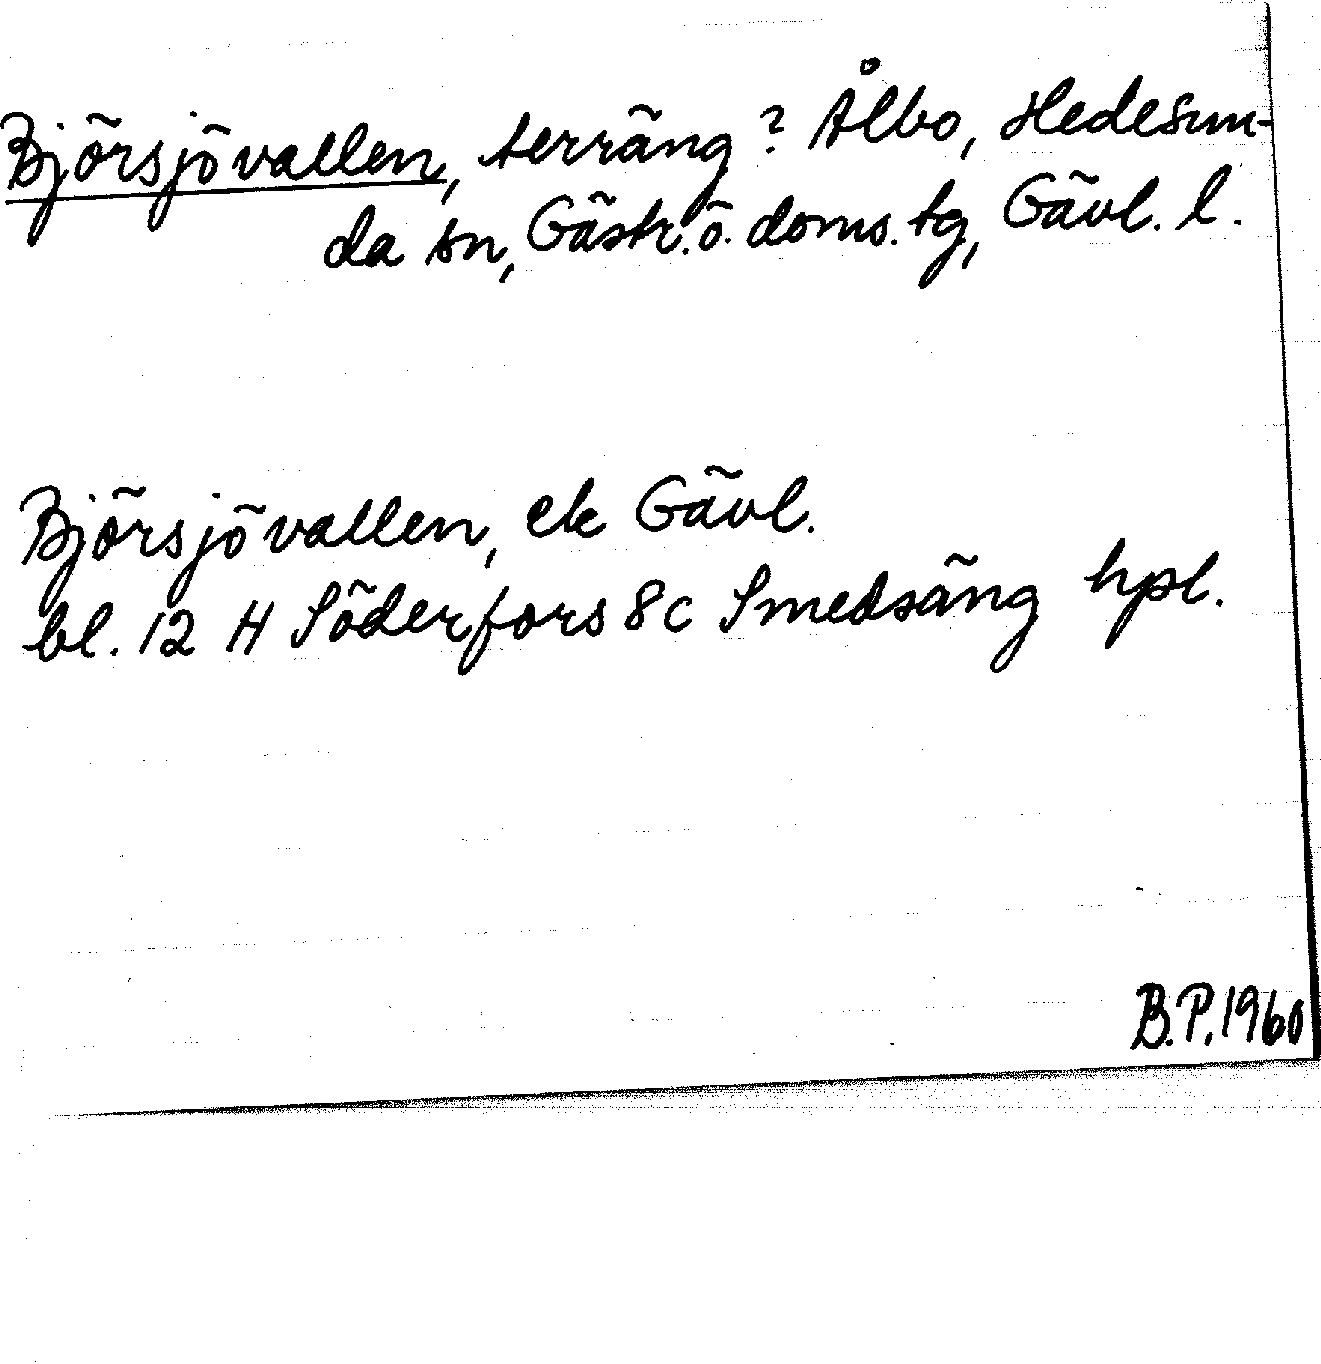 Björsjövallen, terräng? Ålbo, Hedesun-
da sn, Gästr. ö. doms. tg, Gävl. l.
Björsjövallen, ek Gävl.
bl. 12 H Söderfors 8c Smedsäng hpl.
B.P. 1960